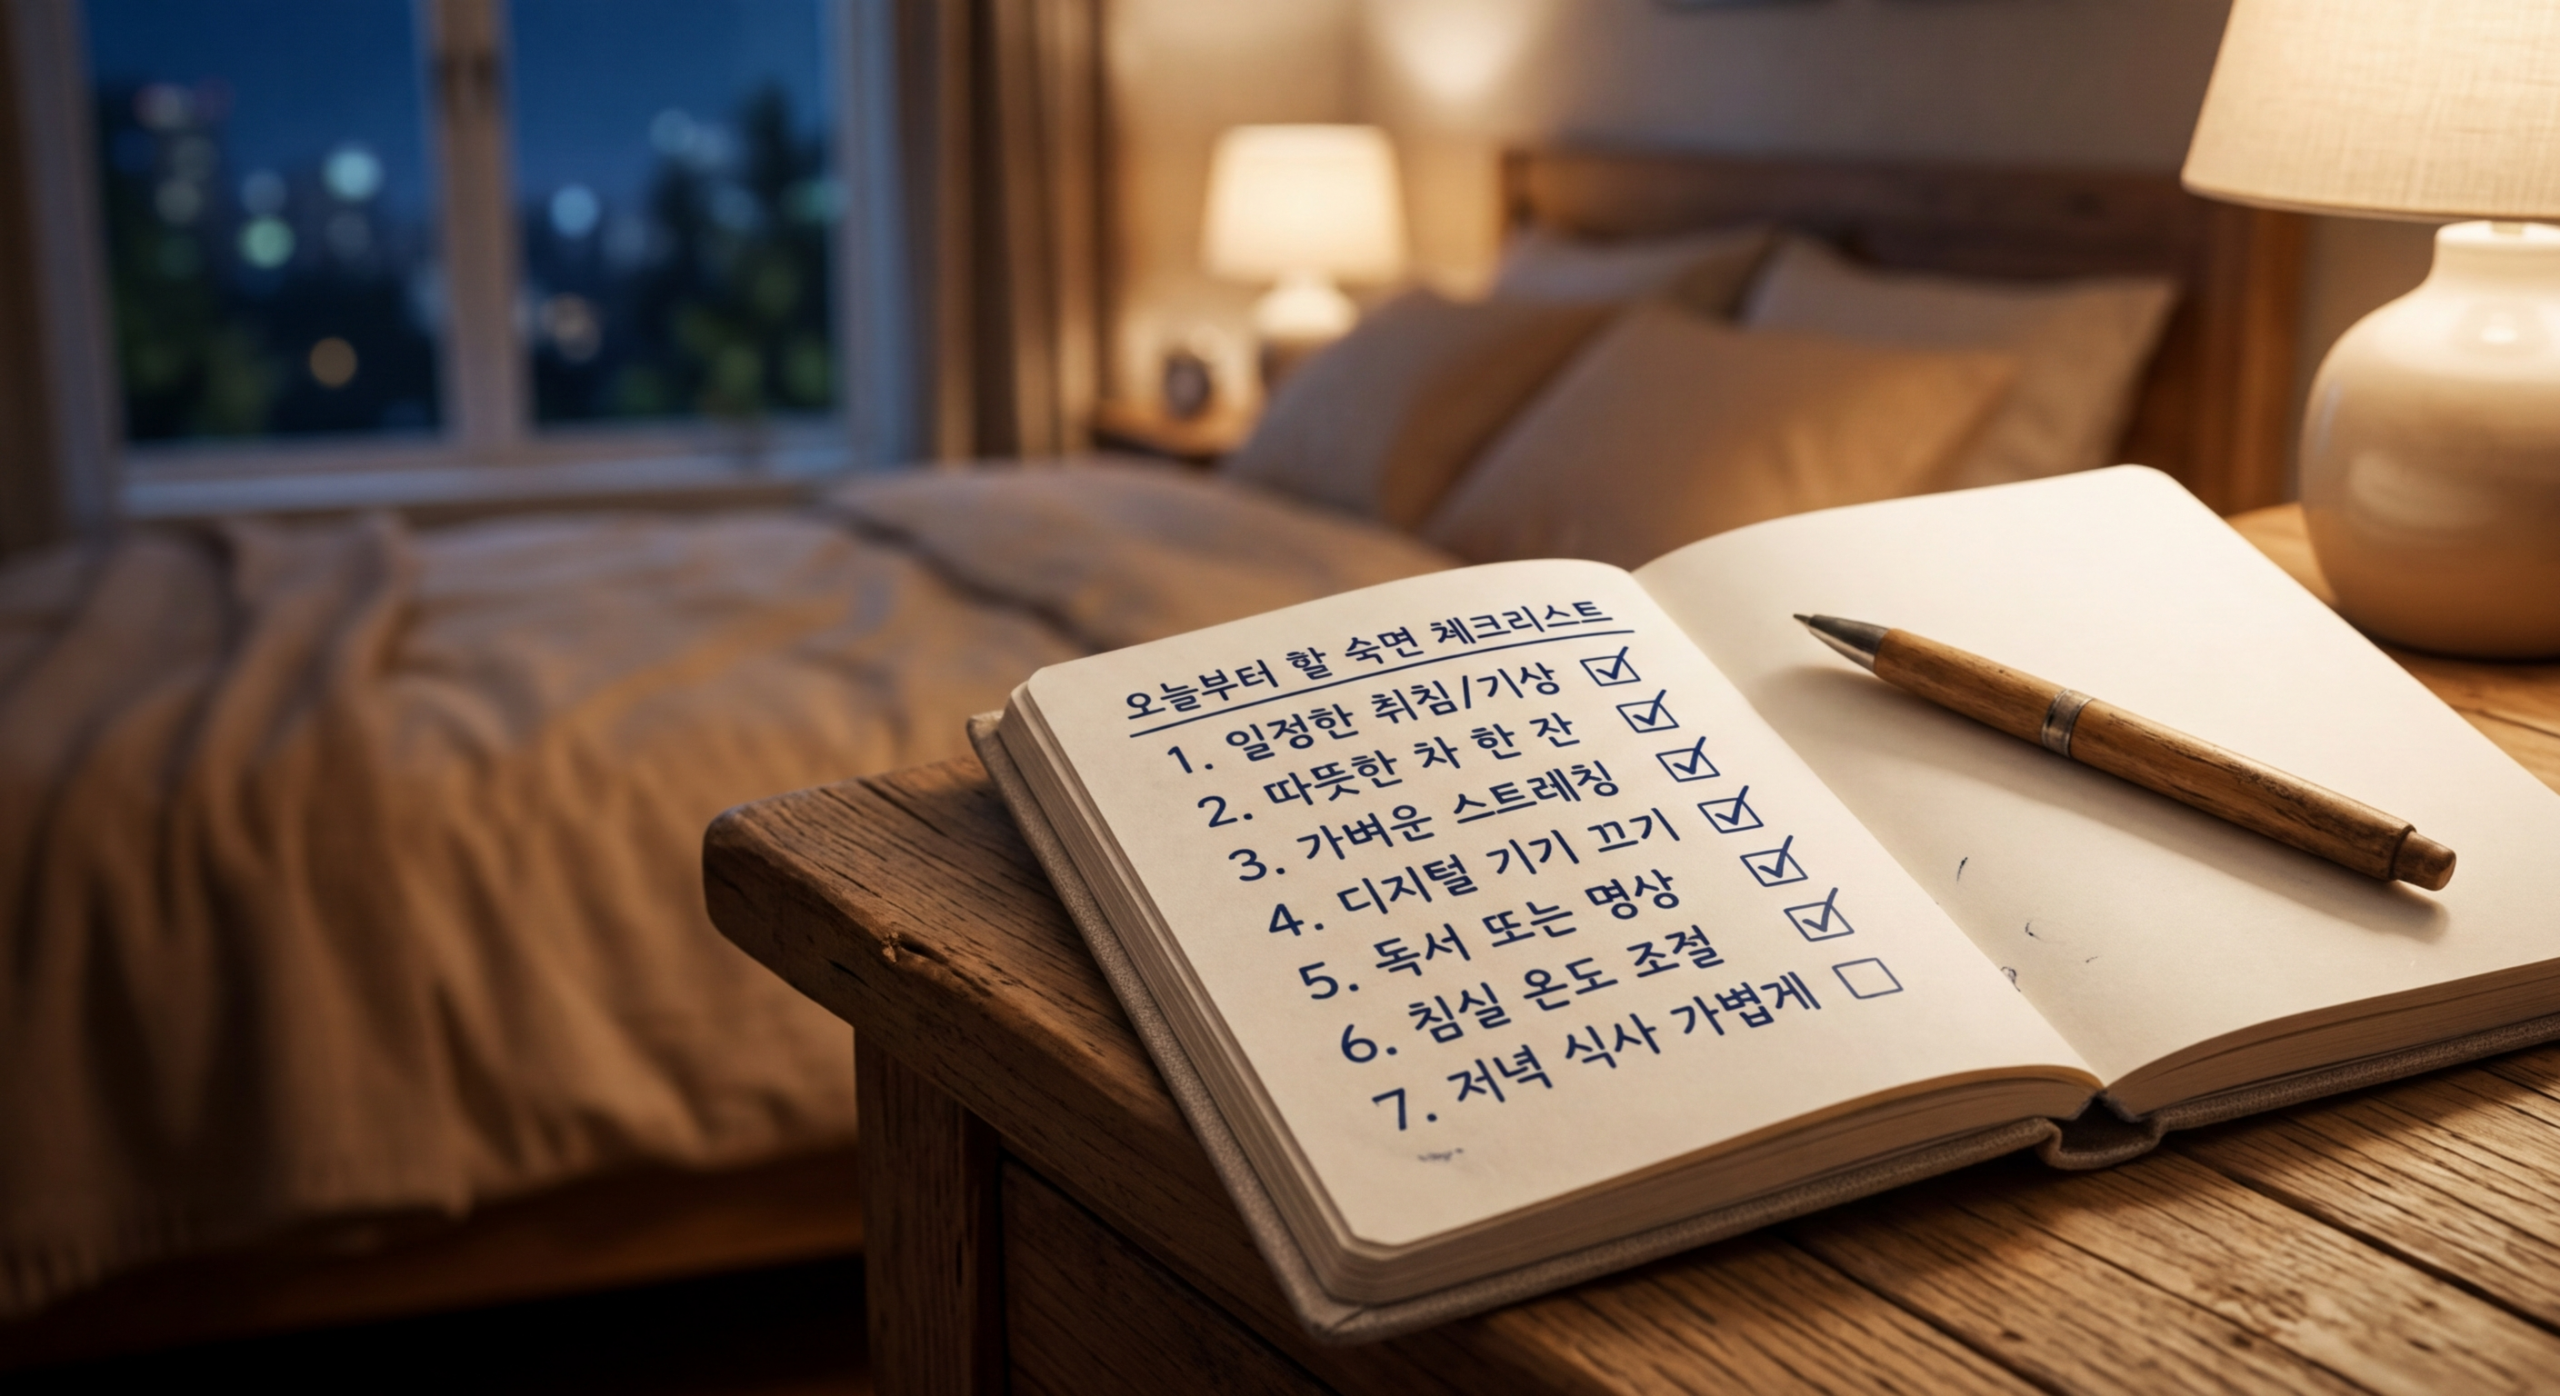 오늘부터 할 숙면 체크리스트
1. 일정한 취침/기상 ☑
2. 따뜻한 차 한 잔 ☑
3. 가벼운 스트레칭 ☑
4. 디지털 기기 끄기 ☑
5. 독서 또는 명상 ☑
6. 침실 온도 조절 ☑
7. 저녁 식사 가볍게 ☐